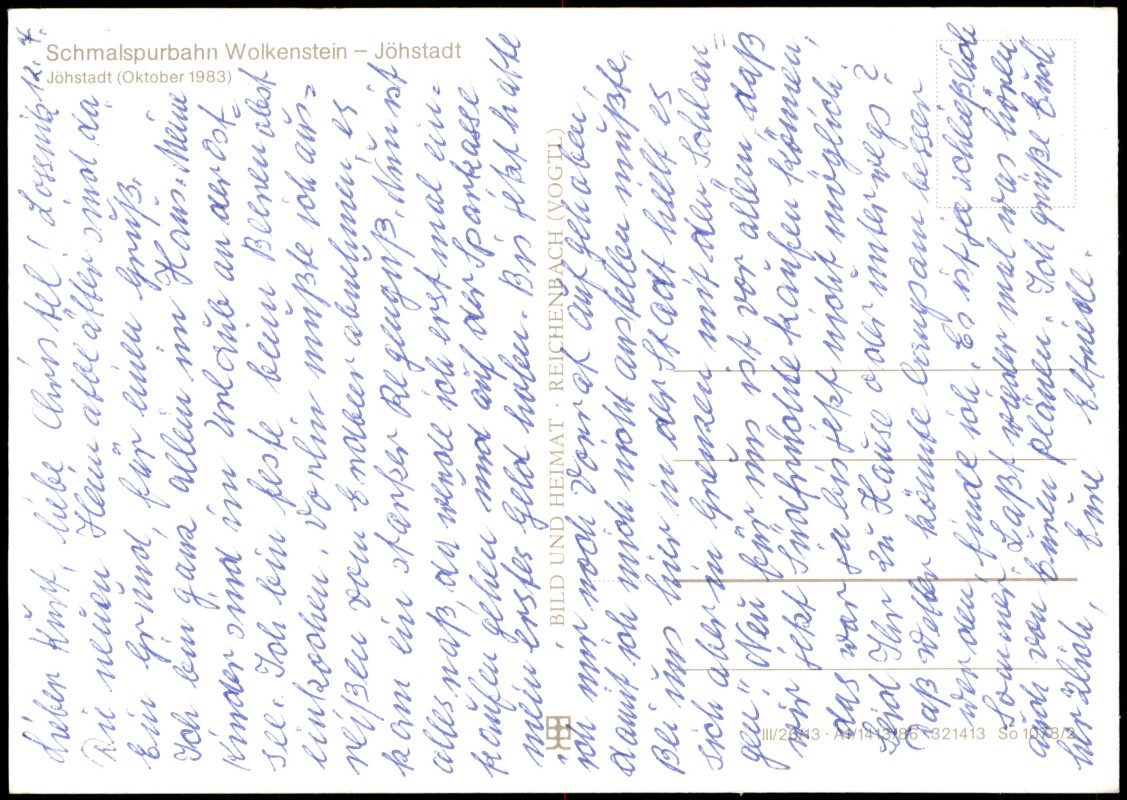 Schmalspurbahn Wolkenstein – Jöhstadt
Jöhstadt (Oktober 1983)
Lieber Kurt, liebe Christel! Lössnitz 12. 7.
Die neuen Heimatblätter sind da
Ein Grund, für einen Gruß.
Ich bin ganz allein im Haus. Meine
Kinder sind in Urlaub an der Ost=
see. Ich bin feste beim Beerenobst
einkochen. Vorhin mußte ich aus=
reißen vom Erdbeerabnehmen es
kam ein starker Regenguß. Nun ist
alles naß da werde ich erst mal ein=
kaufen gehen und auf der Sparkasse
mein erstes Geld holen. Bis jetzt hatte
ich mir noch Vorrat aufgehoben,
damit ich mich nicht anstellen mußte.
Bei uns hier in der Stadt hielt es
sich aber in Grenzen mit den Schlan=
gen. Neu für uns ist vor allem daß
wir jetzt Südfrüchte kaufen können,
das war ja bis jetzt nicht möglich.
Seid Ihr zu Hause oder unterwegs?
Daß Wetter könnte langsam besser
werden finde ich. Es ist ja schließlich
Sommer. Laßt wieder mal was hören
auch von Euren Plänen. Ich grüße Euch
herzlich, Eure Elfriede.
BILD UND HEIMAT · REICHENBACH (VOGTL)
III/26/13 · A1/1413/86 321413 So 1078/2